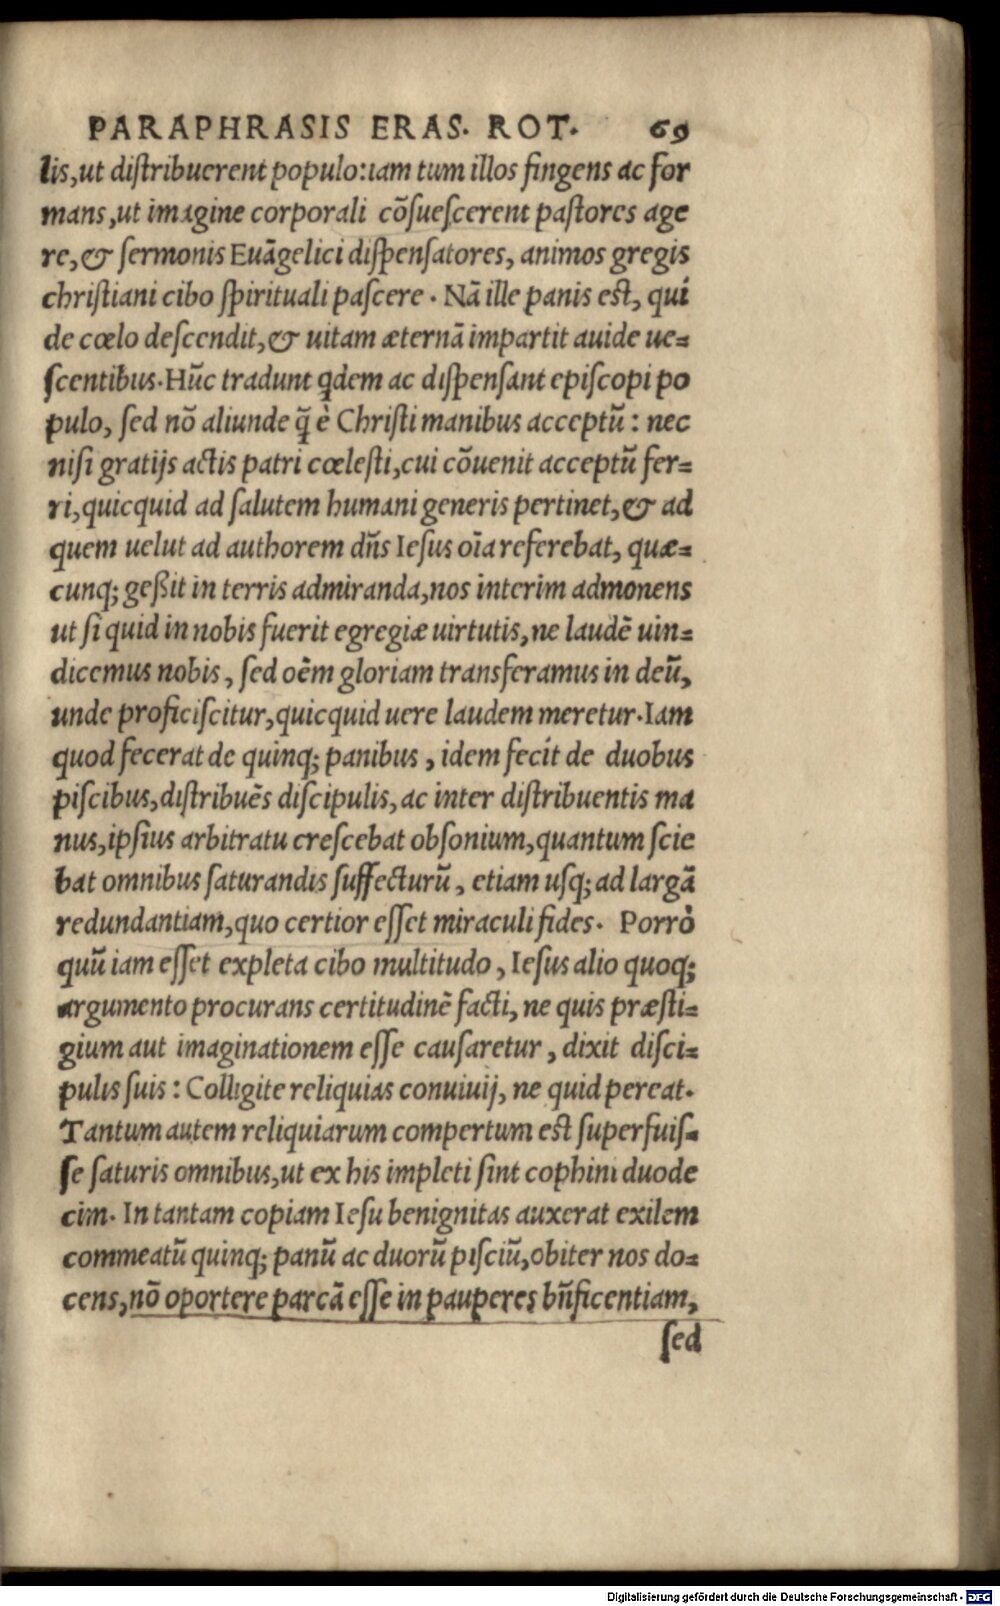 PARAPHRASIS ERAS. ROT. 69
lis,ut diſtribuerent populo:iam tum illos fingens ac for
mans,ut imagine corporali cõſueſcerent paſtores age
re,& ſermonis Euãgelici diſpenſatores, animos gregis
chriſtiani cibo ſpirituali paſcere. Nã ille panis est, qui
de cœlo deſcendit,& uitam æternã impartit auide ue=
ſcentibus.Hũc tradunt qdem ac diſpenſant epiſcopi po
pulo, ſed nõ aliunde q̃ è Chriſti manibus acceptũ: nec
niſi gratijs actis patri cœleſti,cui cõuenit acceptũ fer=
ri,quicquid ad ſalutem humani generis pertinet,& ad
quem uelut ad authorem dñs Ieſus oĩa referebat, quæ=
cunq; geßit in terris admiranda,nos interim admonens
ut ſi quid in nobis fuerit egregiæ uirtutis,ne laudẽ uin=
dicemus nobis, ſed oẽm gloriam transferamus in deũ,
unde proficiſcitur,quicquid uere laudem meretur.Iam
quod fecerat de quinq; panibus, idem fecit de duobus
piſcibus,diſtribuẽs diſcipulis, ac inter diſtribuentis ma
nus,ipſius arbitratu creſcebat obſonium,quantum ſcie
bat omnibus ſaturandis ſuffecturũ, etiam uſq; ad largã
redundantiam,quo certior eſſet miraculi fides. Porrò
quũ iam eſſet expleta cibo multitudo, Ieſus alio quoq;
argumento procurans certitudinẽ facti, ne quis præſti=
gium aut imaginationem eſſe cauſaretur, dixit diſci=
pulis ſuis: Colligite reliquias conuiuij, ne quid pereat.
Tantum autem reliquiarum compertum est ſuperfuiſ=
ſe ſaturis omnibus,ut ex his impleti ſint cophini duode
cim. In tantam copiam Ieſu benignitas auxerat exilem
commeatũ quinq; panũ ac duorũ piſciũ,obiter nos do=
cens,nõ oportere parcã eſſe in pauperes bñficentiam,
ſed
Digitalisierung gefördert durch die Deutsche Forschungsgemeinschaft - DFG